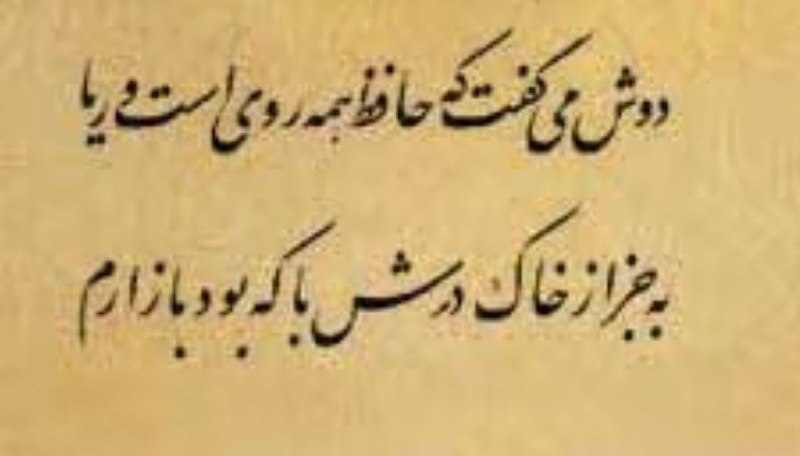 دوش می گفت که حافظ همه روی است و ریا
به جز از خاک درش با که بود بازارم